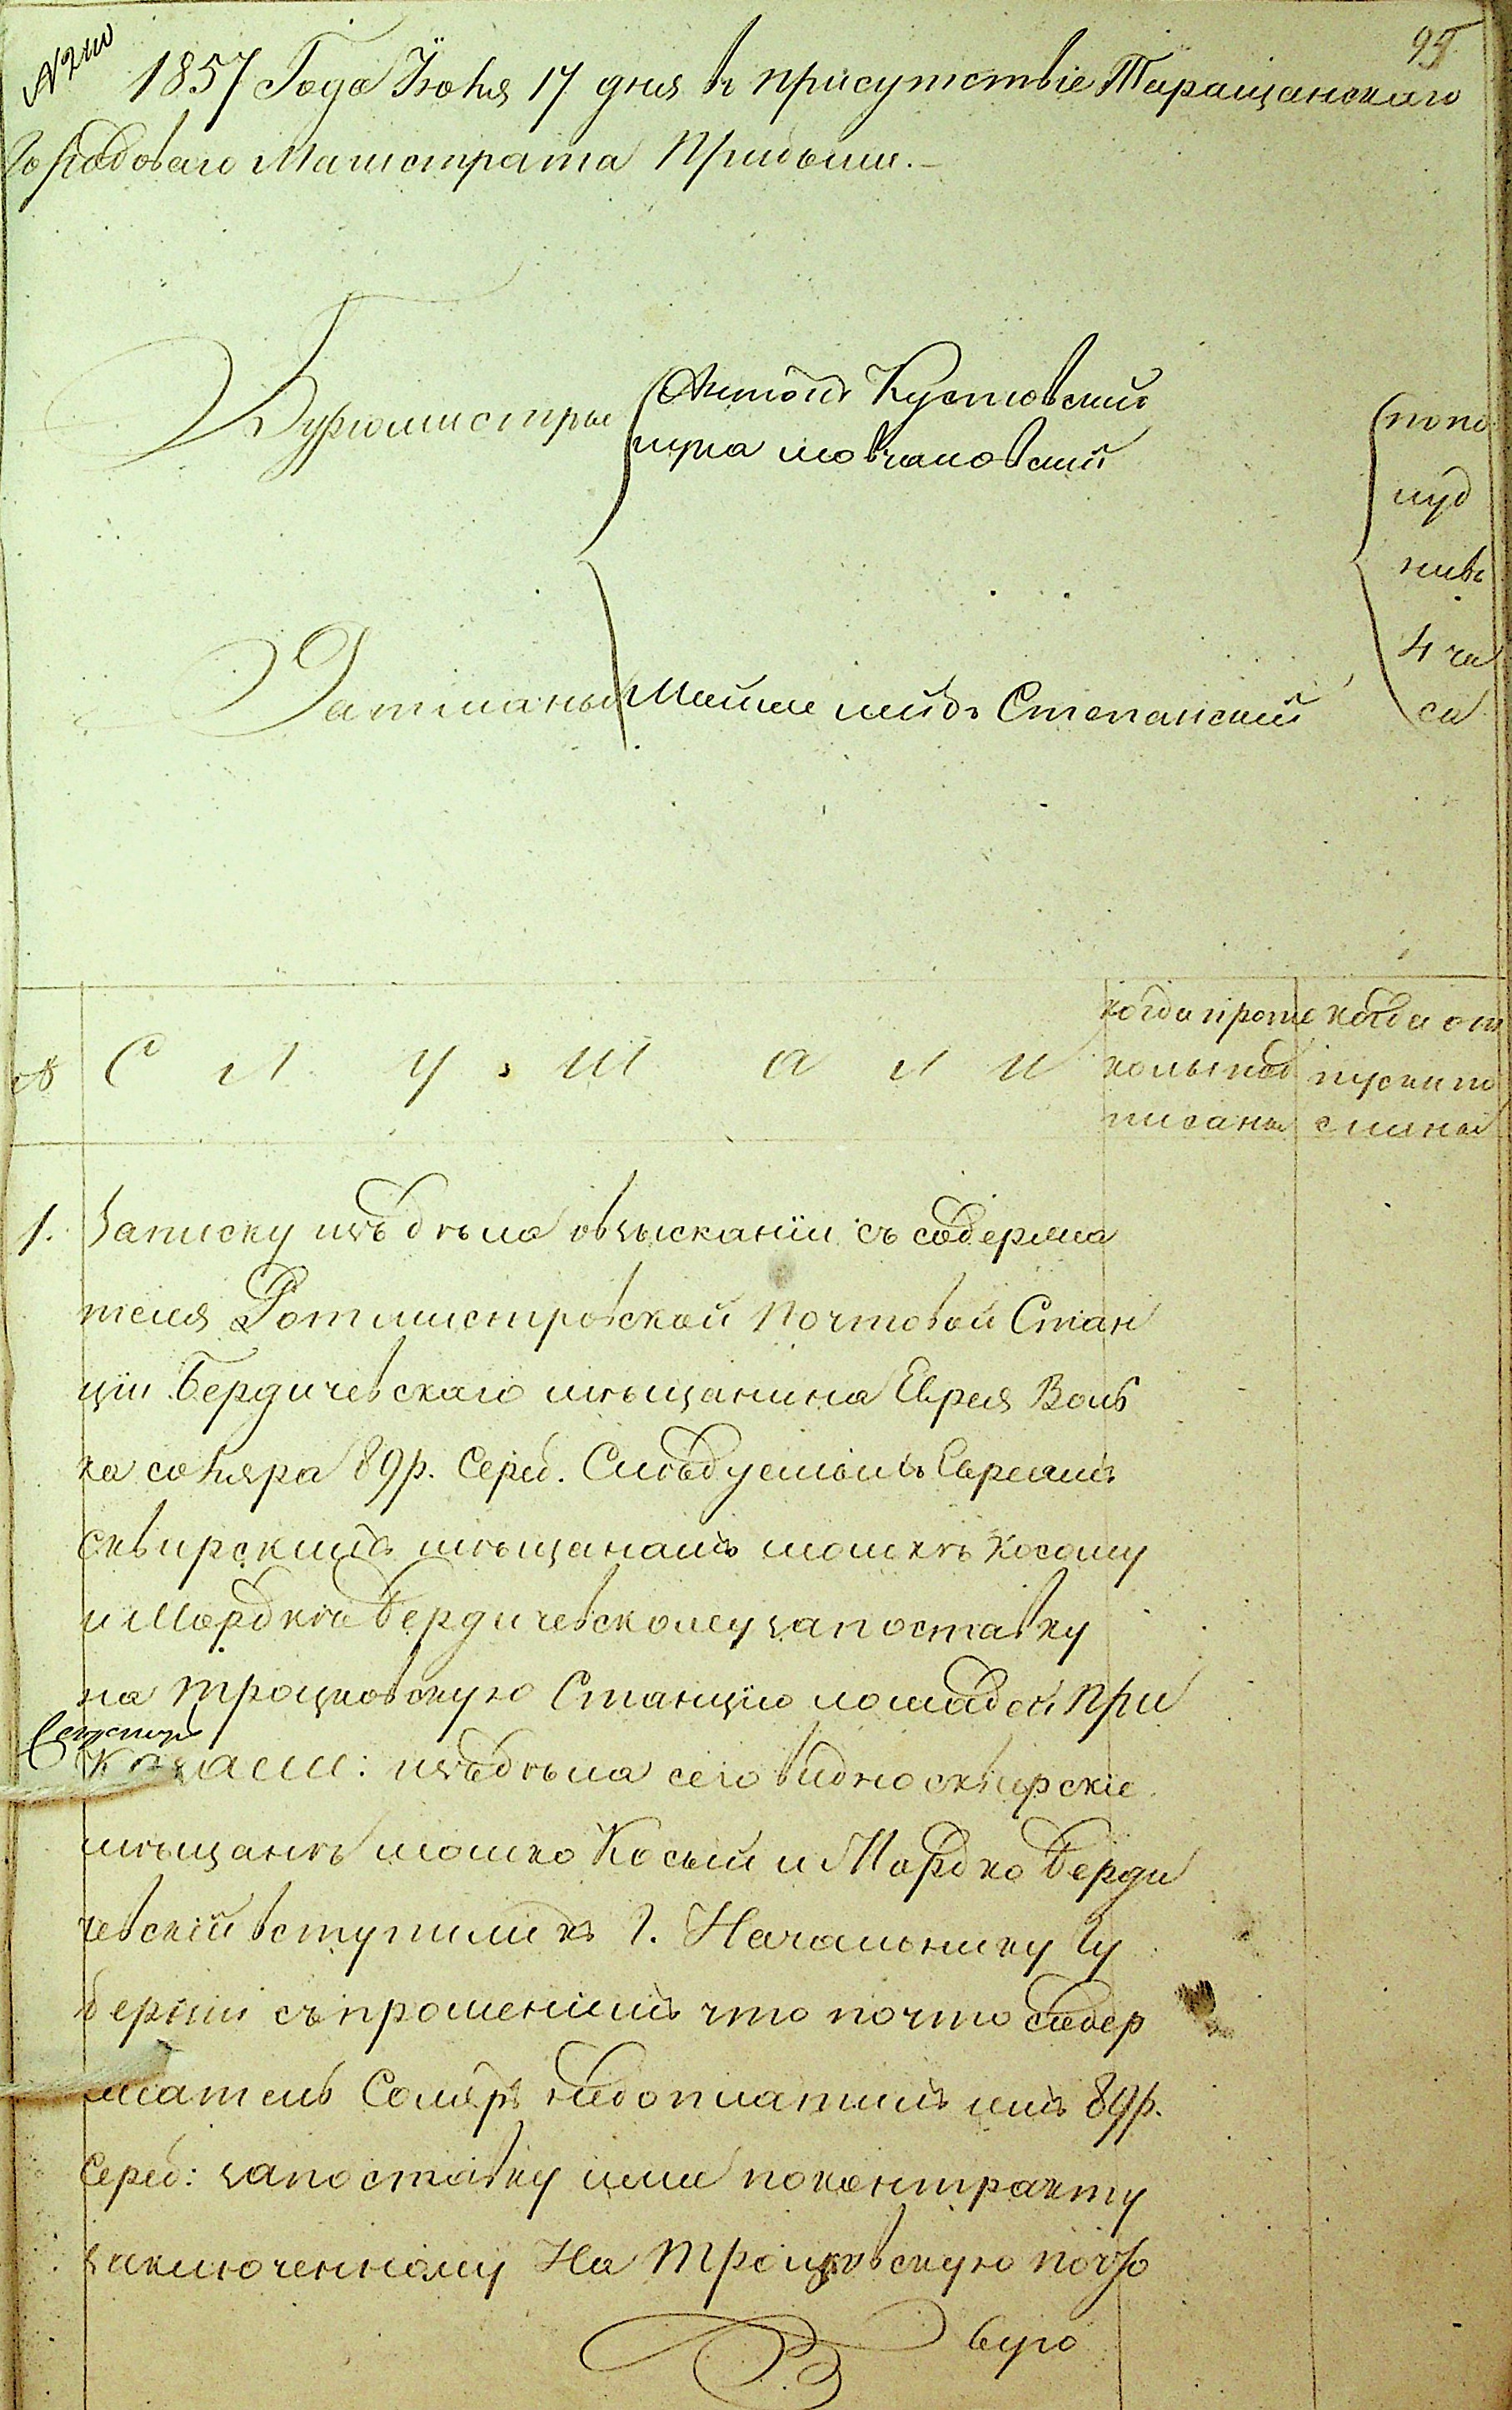 95
1857 Года Іюня 17 дня въ присутствіе Таращанскаго
Городоваго Магистрата Прибыли.
Бургомистры
Антонъ Кустовскій
Лука Мовчановскій
Ратманы
Мошко Лейбъ Степанскій
попо
луд
нив
4 ча
са
№ С л у ш а л и
когда прото
колы под
писаны
когда от
пуски по
сланы
1. Записку изъ дѣла овзысканіи съ содержа
теля Ротмистровской Почтовой Стан
ціи Бердичевскаго мѣщанина Еврея Воль
ка Соляра 89 р. Сереб. Слѣдуемыхъ Евреямъ
сквирскимъ мѣщанамъ Мошкѣ Косому
и Мордкѣ Бердичевскому запоставку
на Троцковскую Станцію лошадей При
казали: изъ дѣла сего видно сквирскіе
мѣщанѣ Мошко Косый и Мордко Берди
чевскій вступили къ Г. Начальнику Гу
берніи съ прошеніимъ что почто содер
жатель Соляръ недоплатилъ имъ 89 р.
Сереб: запоставку ими поконтракту
заключенному На Троцковскую почто
вую